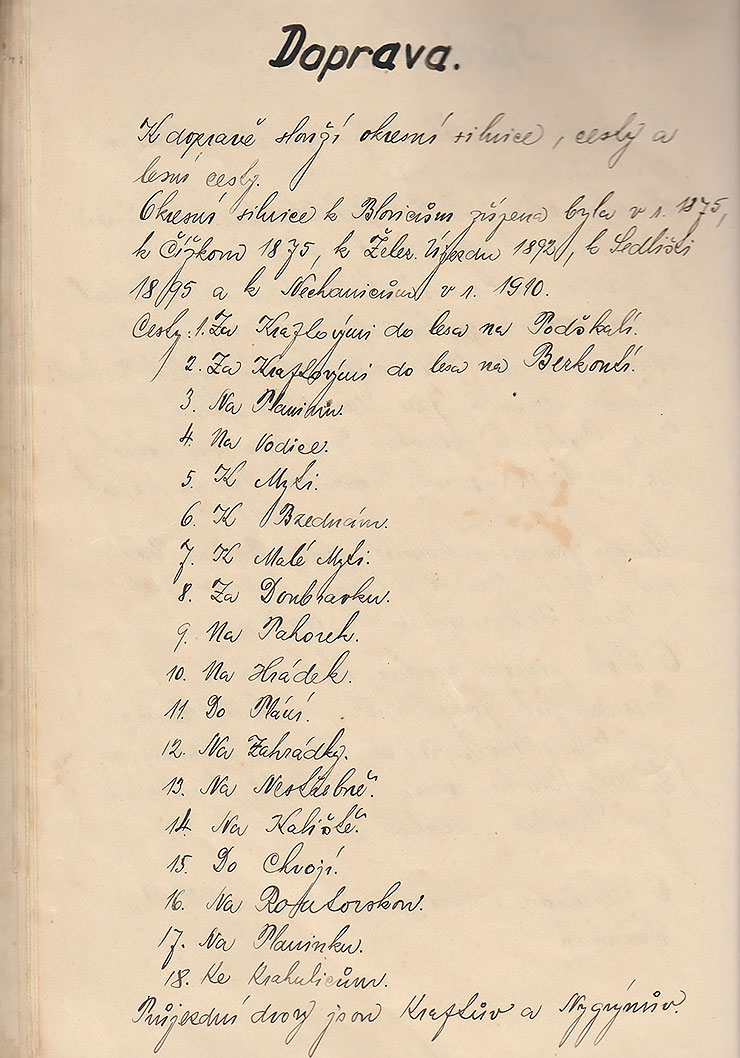 Doprava.
K dopravě slouží okresní silnice, cesty a
lesní cesty.
Okresní silnice k Blovicům zřízena byla v r. 1875,
k Čížkovu 1875, k Želez. Újezdu 1892, k Sedlišti
1895 a k Nechanicům v r. 1910.
Cesty: 1. Za Kraftovými do lesa na Podškalí.
2. Za Kraftovými do lesa na Berkoutí.
3. Na Planinu.
4. Na Vodice.
5. K Myti.
6. K Bzednám.
7. K Malé Myti.
8. Za Doubravku.
9. Na Pahorek.
10. Na Hrádek.
11. Do Plání.
12. Na Zahrádky.
13. Na Nestřebně.
14. Na Kališťě.
15. Do Chvojí.
16. Na
17. Na Planinku.
18. Ke Krahulicům.
Průjezdní dvory jsou Kraftův a Nygrýnův.